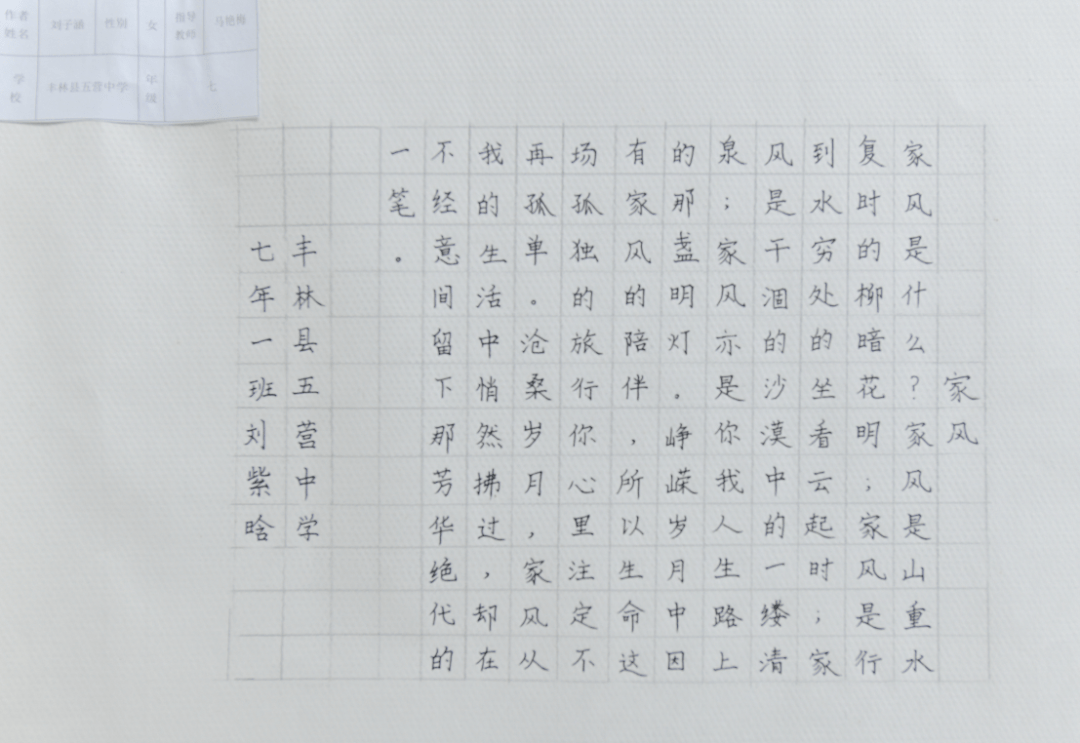 作者姓名 性别 女 指导教师
学校 丰林县五营中学 年级 七
家风
家风是什么?家风是山重水
复时的柳暗花明;家风是行
到水穷处的坐看云起时;家
风是干涸的沙漠中的一缕清
泉;家风亦是你我人生路上
的那盏明灯。峥嵘岁月中因
有家风的陪伴,所以生命这
场孤独的旅行你心里注定不
再孤单。沧桑岁月,家风从
我的生活中悄然拂过,却在
不经意间留下那芳华绝代的
一笔。
丰林县五营中学
七年一班刘紫晗